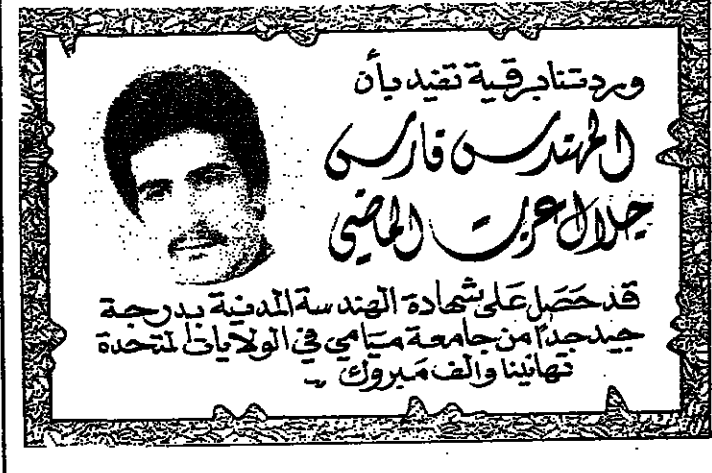 وردتنا برقية تفيد بأن
المهندس فارس
جلال عزت الماضي
قد حصل على شهادة الهندسة المدنية بدرجة
جيد جداً من جامعة ميامي في الولايات المتحدة
تهانينا والف مبروك